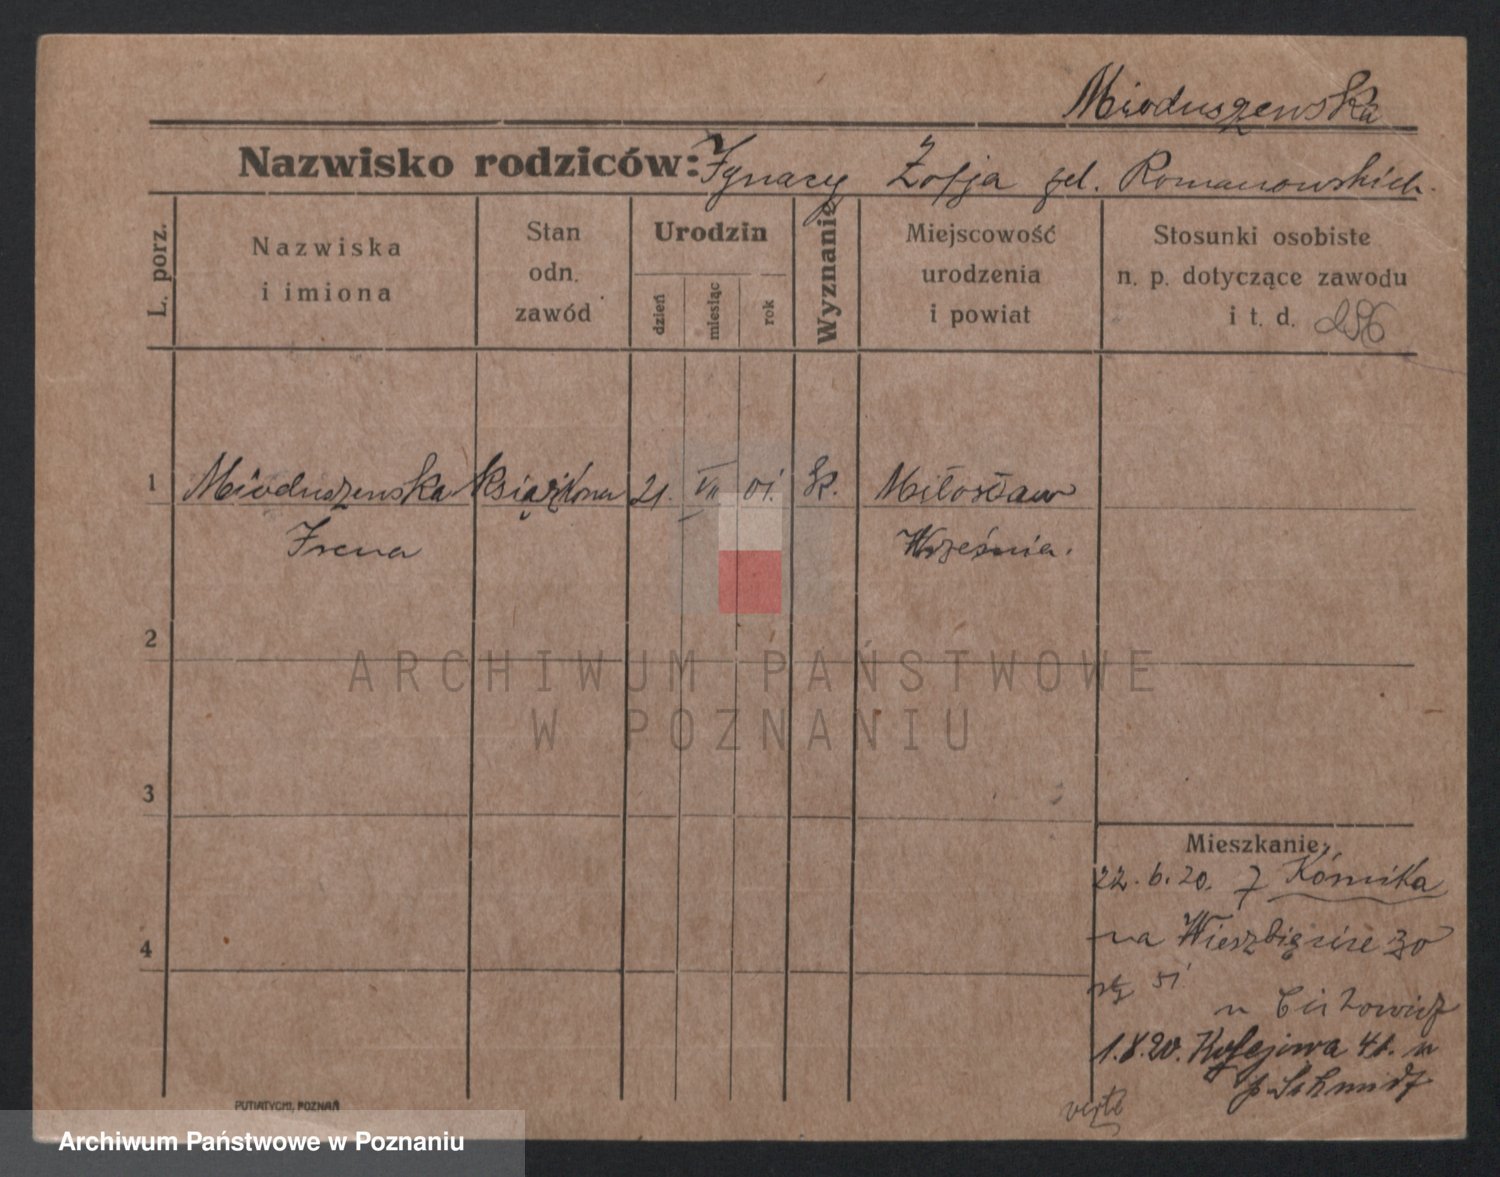 Mioduszewska
Nazwisko rodziców: Ignacy Zofja zd. Romanowskich.
L. porz.
Nazwiska
i imiona
Stan
odn.
zawód
Urodzin
dzień
miesiąc
rok
Wyznanie
Miejscowość
urodzenia
i powiat
Stosunki osobiste
n. p. dotyczące zawodu
i t. d.
1 Mioduszewska książkowa 21. VII 01. k. Miłosław
Irena Września.
2
ARCHIWUM PAŃSTWOWE
W POZNANIU
3
Mieszkanie:
22.6.20. z Kórnika
na Wierzbięcice 30
4
u
1.8.20. Kolejowa 41. u
p Schmidt
verte
PUTIATYCKI, POZNAŃ
Archiwum Państwowe w Poznaniu